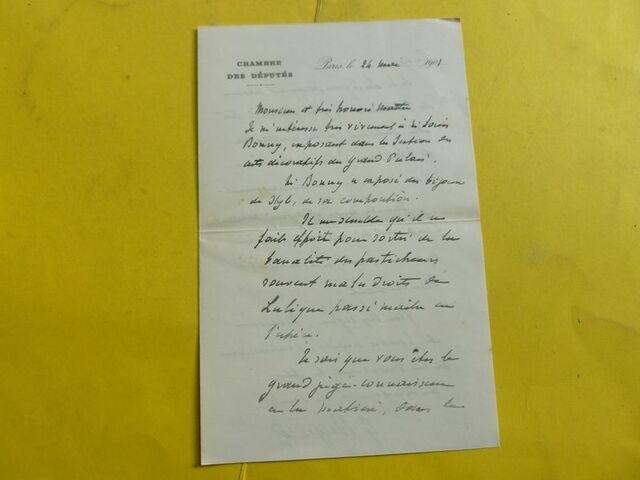 CHAMBRE
DES DÉPUTÉS
Paris, le 24 mai 1901
Monsieur et très honoré Maître
Je m'intéresse très vivement à M. Louis
Bonny, exposant dans la Section des
arts décoratifs du Grand Palais.
M. Bonny a exposé des bijoux
de style, de sa composition.
Il me semble qu'il a
fait effort pour sortir de la
banalité des pasticheurs
souvent maladroits de
Lalique passé maître en
l'espèce.
Je sais que vous êtes le
grand juge-connaisseur
en la matière, dans la